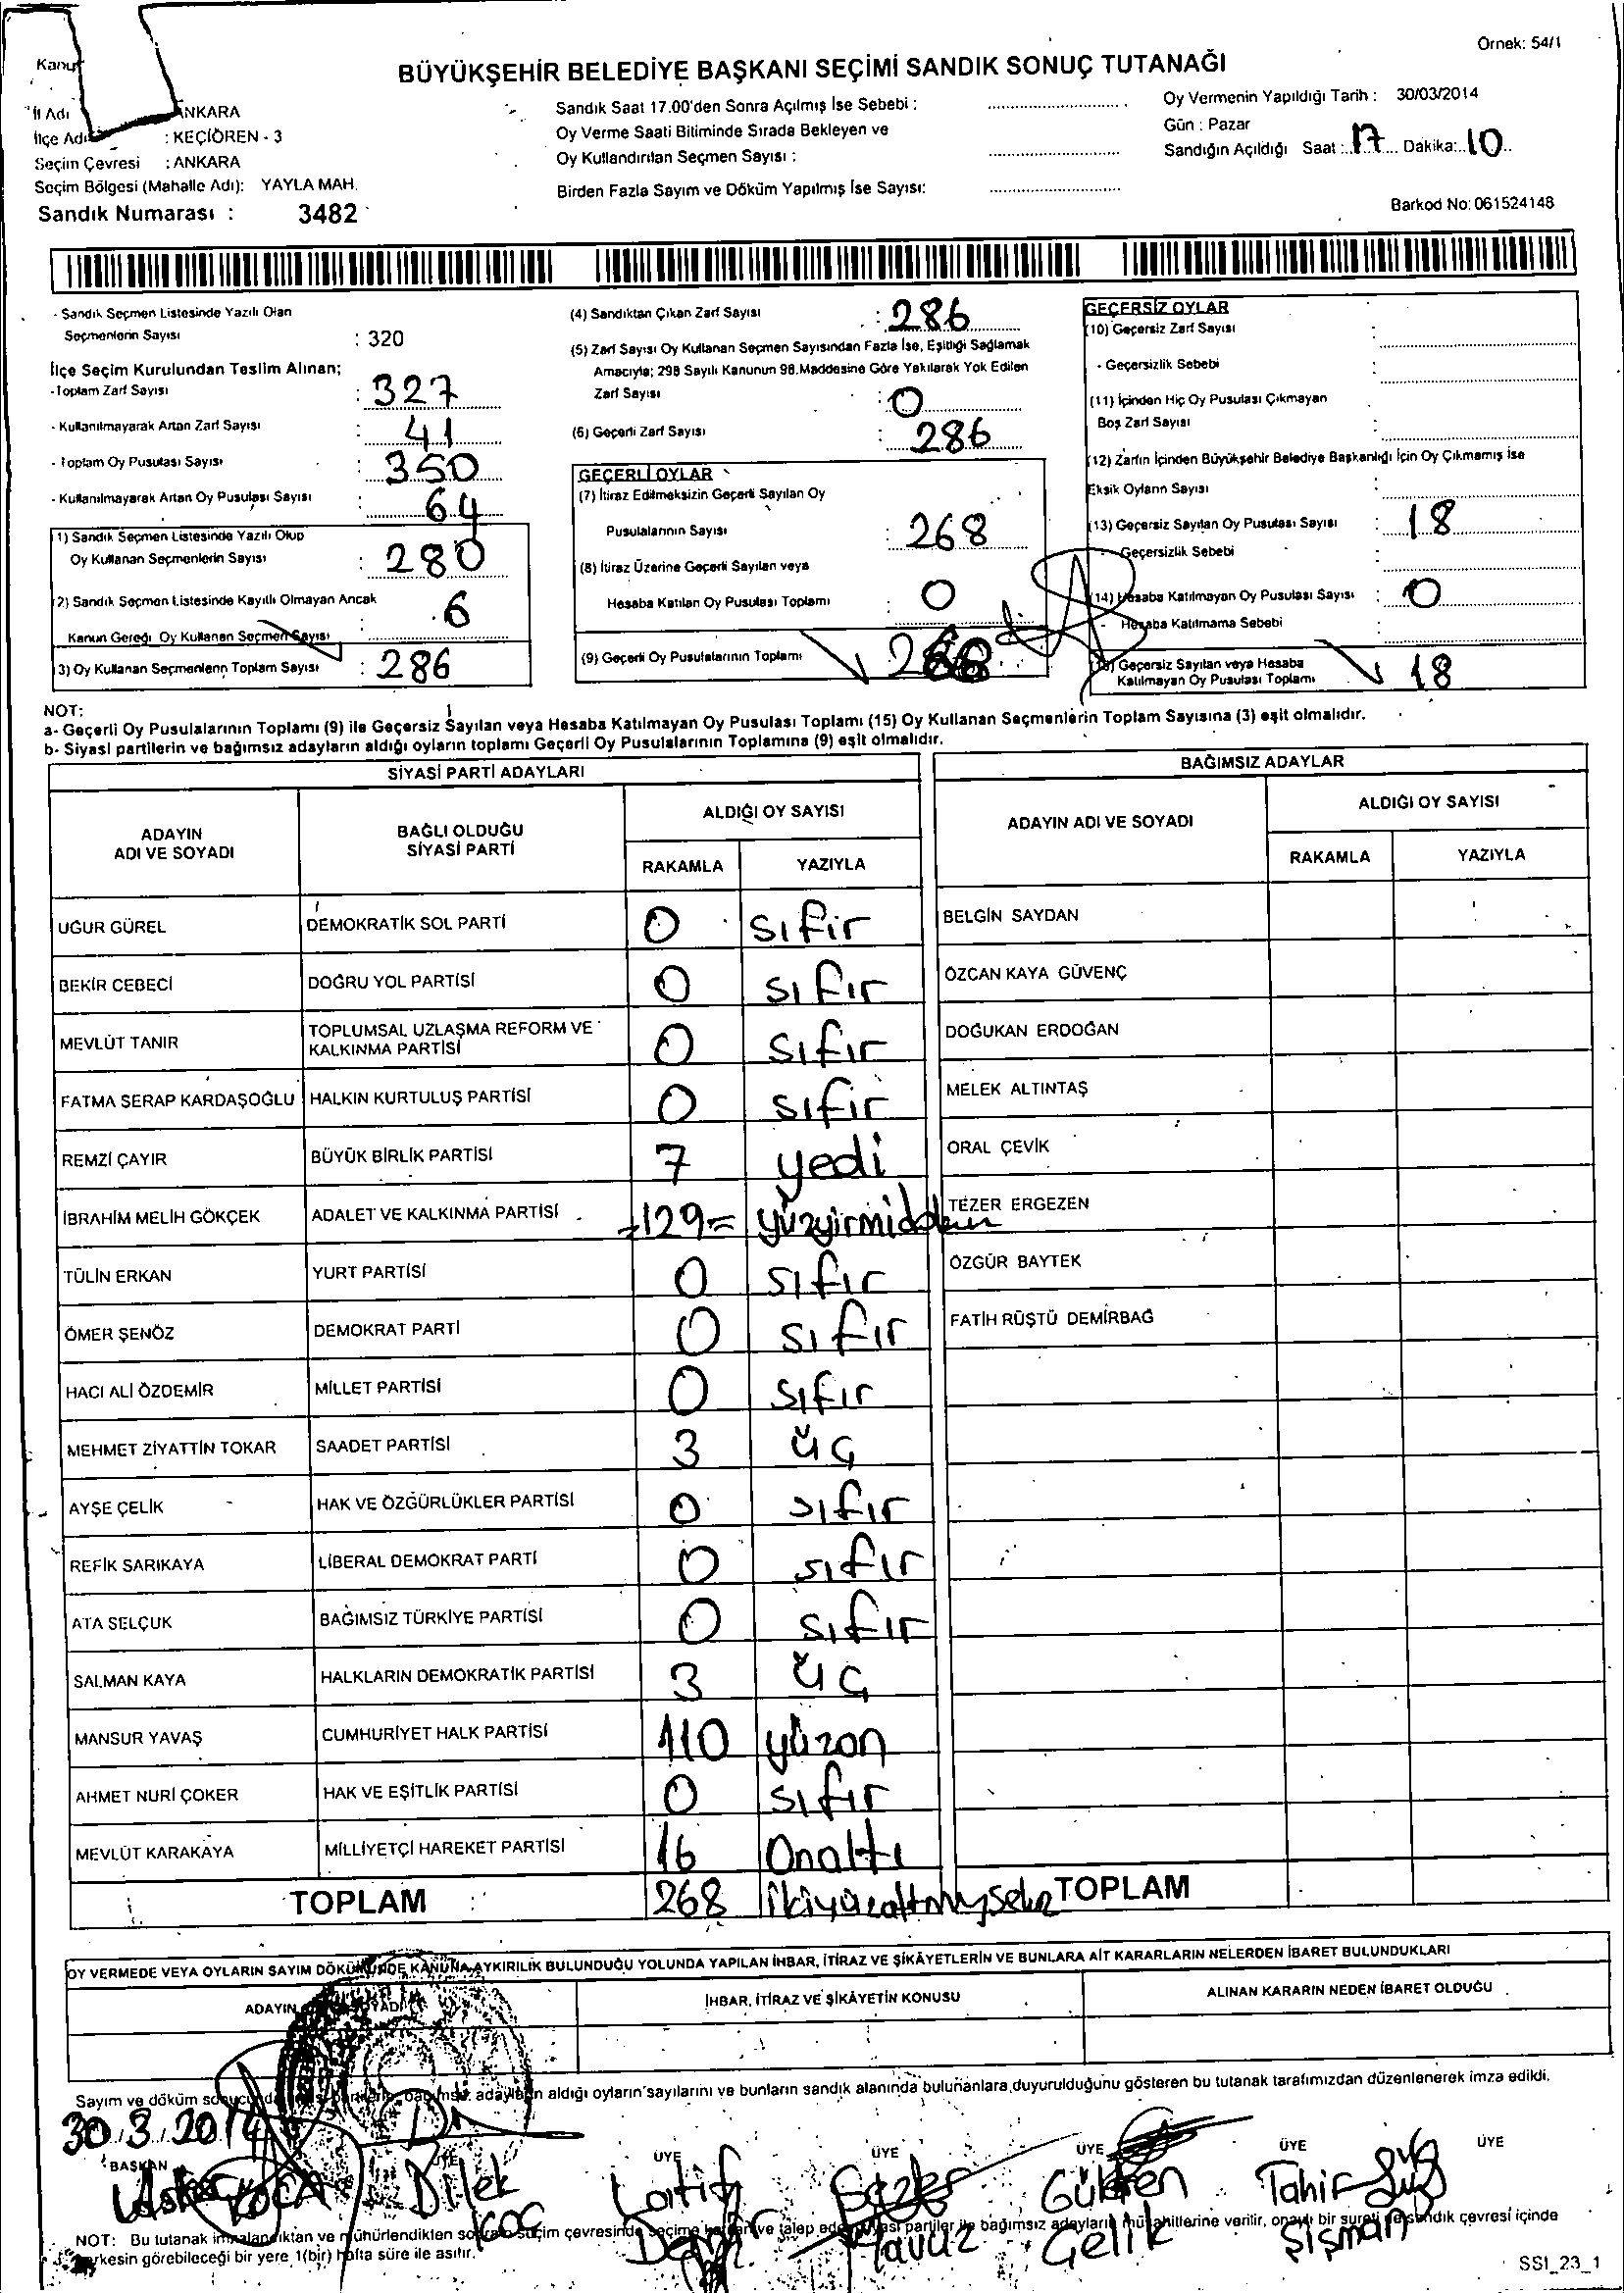 Örnek: 54/1
BÜYÜKŞEHİR BELEDİYE BAŞKANI SEÇİMİ SANDIK SONUÇ TUTANAĞI
İl Adı : ANKARA
İlçe Adı : KEÇİÖREN - 3
Seçim Çevresi : ANKARA
Seçim Bölgesi (Mahalle Adı): YAYLA MAH.
Sandık Numarası : 3482
Sandık Saat 17.00'den Sonra Açılmış İse Sebebi :
Oy Verme Saati Bitiminde Sırada Bekleyen ve
Oy Kullandırılan Seçmen Sayısı :
Birden Fazla Sayım ve Döküm Yapılmış İse Sayısı:
Oy Vermenin Yapıldığı Tarih : 30/03/2014
Gün : Pazar
Sandığın Açıldığı Saat : 17 Dakika: 10
Barkod No: 061524148
- Sandık Seçmen Listesinde Yazılı Olan
Seçmenlerin Sayısı : 320
İlçe Seçim Kurulundan Teslim Alınan;
- Toplam Zarf Sayısı : 327
- Kullanılmayarak Artan Zarf Sayısı : 41
- Toplam Oy Pusulası Sayısı : 350
- Kullanılmayarak Artan Oy Pusulası Sayısı : 64
1) Sandık Seçmen Listesinde Yazılı Olup
Oy Kullanan Seçmenlerin Sayısı : 280
(2) Sandık Seçmen Listesinde Kayıtlı Olmayan Ancak
Kanun Gereği Oy Kullanan Seçmen Sayısı : 6
3) Oy Kullanan Seçmenlerin Toplam Sayısı : 286
(4) Sandıktan Çıkan Zarf Sayısı : 286
(5) Zarf Sayısı Oy Kullanan Seçmen Sayısından Fazla İse, Eşitliği Sağlamak
Amacıyla; 298 Sayılı Kanunun 98.Maddesine Göre Yakılarak Yok Edilen
Zarf Sayısı : 0
(6) Geçerli Zarf Sayısı : 286
GEÇERLİ OYLAR
(7) İtiraz Edilmeksizin Geçerli Sayılan Oy
Pusulalarının Sayısı : 268
(8) İtiraz Üzerine Geçerli Sayılan veya
Hesaba Katılan Oy Pusulası Toplamı : 0
(9) Geçerli Oy Pusulalarının Toplamı 268
GEÇERSİZ OYLAR
(10) Geçersiz Zarf Sayısı :
- Geçersizlik Sebebi :
(11) İçinden Hiç Oy Pusulası Çıkmayan
Boş Zarf Sayısı :
(12) Zarfın İçinden Büyükşehir Belediye Başkanlığı İçin Oy Çıkmamış İse
Eksik Oyların Sayısı :
(13) Geçersiz Sayılan Oy Pusulası Sayısı : 18
Geçersizlik Sebebi :
(14) Hesaba Katılmayan Oy Pusulası Sayısı : 0
- Hesaba Katılmama Sebebi :
(15) Geçersiz Sayılan veya Hesaba
Katılmayan Oy Pusulası Toplamı 18
NOT:
a- Geçerli Oy Pusulalarının Toplamı (9) ile Geçersiz Sayılan veya Hesaba Katılmayan Oy Pusulası Toplamı (15) Oy Kullanan Seçmenlerin Toplam Sayısına (3) eşit olmalıdır.
b- Siyasi partilerin ve bağımsız adayların aldığı oyların toplamı Geçerli Oy Pusulalarının Toplamına (9) eşit olmalıdır.
SİYASİ PARTİ ADAYLARI
ADAYIN ADI VE SOYADI BAĞLI OLDUĞU SİYASİ PARTİ ALDIĞI OY SAYISI
RAKAMLA YAZIYLA
UĞUR GÜREL DEMOKRATİK SOL PARTİ 0 sıfır
BEKİR CEBECİ DOĞRU YOL PARTİSİ 0 sıfır
MEVLÜT TANIR TOPLUMSAL UZLAŞMA REFORM VE KALKINMA PARTİSİ 0 sıfır
FATMA SERAP KARDAŞOĞLU HALKIN KURTULUŞ PARTİSİ 0 sıfır
REMZİ ÇAYIR BÜYÜK BİRLİK PARTİSİ 7 yedi
İBRAHİM MELİH GÖKÇEK ADALET VE KALKINMA PARTİSİ =129= yüzyirmidokuz
TÜLİN ERKAN YURT PARTİSİ 0 sıfır
ÖMER ŞENÖZ DEMOKRAT PARTİ 0 sıfır
HACI ALİ ÖZDEMİR MİLLET PARTİSİ 0 sıfır
MEHMET ZİYATTİN TOKAR SAADET PARTİSİ 3 üç
AYŞE ÇELİK HAK VE ÖZGÜRLÜKLER PARTİSİ 0 sıfır
REFİK SARIKAYA LİBERAL DEMOKRAT PARTİ 0 sıfır
ATA SELÇUK BAĞIMSIZ TÜRKİYE PARTİSİ 0 sıfır
SALMAN KAYA HALKLARIN DEMOKRATİK PARTİSİ 3 üç
MANSUR YAVAŞ CUMHURİYET HALK PARTİSİ 110 yüzon
AHMET NURİ ÇOKER HAK VE EŞİTLİK PARTİSİ 0 sıfır
MEVLÜT KARAKAYA MİLLİYETÇİ HAREKET PARTİSİ 16 Onaltı
TOPLAM : 268
BAĞIMSIZ ADAYLAR
ADAYIN ADI VE SOYADI ALDIĞI OY SAYISI
RAKAMLA YAZIYLA
BELGİN SAYDAN
ÖZCAN KAYA GÜVENÇ
DOĞUKAN ERDOĞAN
MELEK ALTINTAŞ
ORAL ÇEVİK
TEZER ERGEZEN
ÖZGÜR BAYTEK
FATİH RÜŞTÜ DEMİRBAĞ
TOPLAM
OY VERMEDE VEYA OYLARIN SAYIM DÖKÜMÜNDE KANUNA AYKIRILIK BULUNDUĞU YOLUNDA YAPILAN İHBAR, İTİRAZ VE ŞİKÂYETLERİN VE BUNLARA AİT KARARLARIN NELERDEN İBARET BULUNDUKLARI
ADAYIN İHBAR, İTİRAZ VE ŞİKÂYETİN KONUSU ALINAN KARARIN NEDEN İBARET OLDUĞU
Sayım ve döküm adayların aldığı oyların sayılarını ve bunların sandık alanında bulunanlara duyurulduğunu gösteren bu tutanak tarafımızdan düzenlenerek imza edildi.
30.3.2014
BAŞKAN ÜYE ÜYE ÜYE ÜYE ÜYE
Dilek Latif Gülten Tahir
KOÇ Yavuz Çelik Şişman
NOT: Bu tutanak imzalandıktan ve mühürlendikten sonra seçim çevresinde seçime ve talep eden siyasi partiler ile bağımsız adayların müşahitlerine verilir, onaylı bir sureti de sandık çevresi içinde
herkesin görebileceği bir yere 1(bir) hafta süre ile asılır.
SSI_23_1